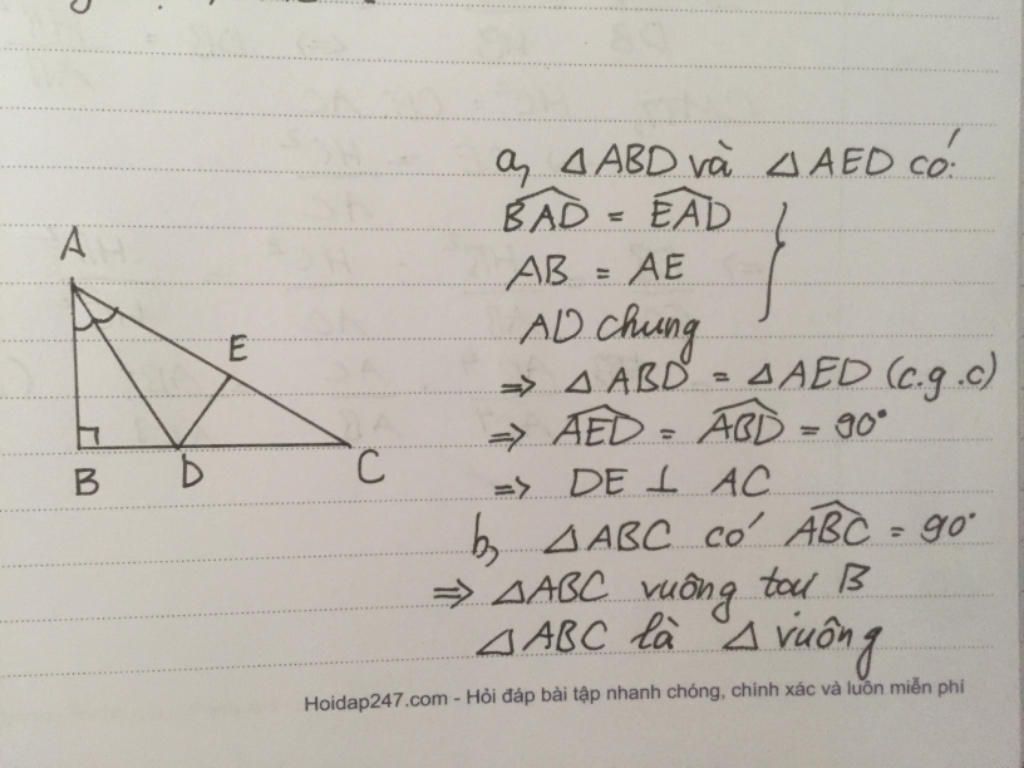 a, △ABD và △AED có:
A
BAD = EAD
AB = AE
AD chung
E
=> △ABD = △AED (c.g.c)
=> AED = ABD = 90°
B D C
=> DE ⊥ AC
b, △ABC có ABC = 90°
=> △ABC vuông tại B
△ABC là △ vuông
Hoidap247.com - Hỏi đáp bài tập nhanh chóng, chính xác và luôn miễn phí